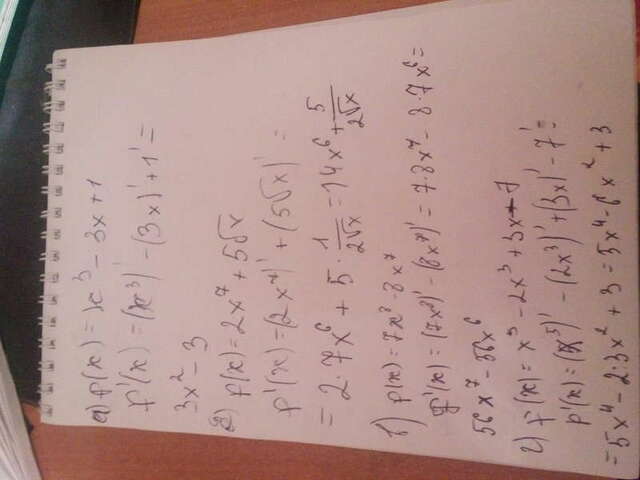 а) f(x) = x³ - 3x + 1
f'(x) = (x³)' - (3x)' + 1' =
3x² - 3
б) f(x) = 2x⁷ + 5√x
f'(x) = (2x⁷)' + (5√x)' =
= 2·7x⁶ + 5 · 1/2√x = 14x⁶ + 5/2√x
в) f(x) = 7x⁸ - 8x⁷
f'(x) = (7x⁸)' - (8x⁷)' = 7·8x⁷ - 8·7x⁶ =
56x⁷ - 56x⁶
г) f(x) = x⁵ - 2x³ + 3x - 7
f'(x) = (x⁵)' - (2x³)' + (3x)' - 7' =
= 5x⁴ - 2·3x² + 3 = 5x⁴ - 6x² + 3